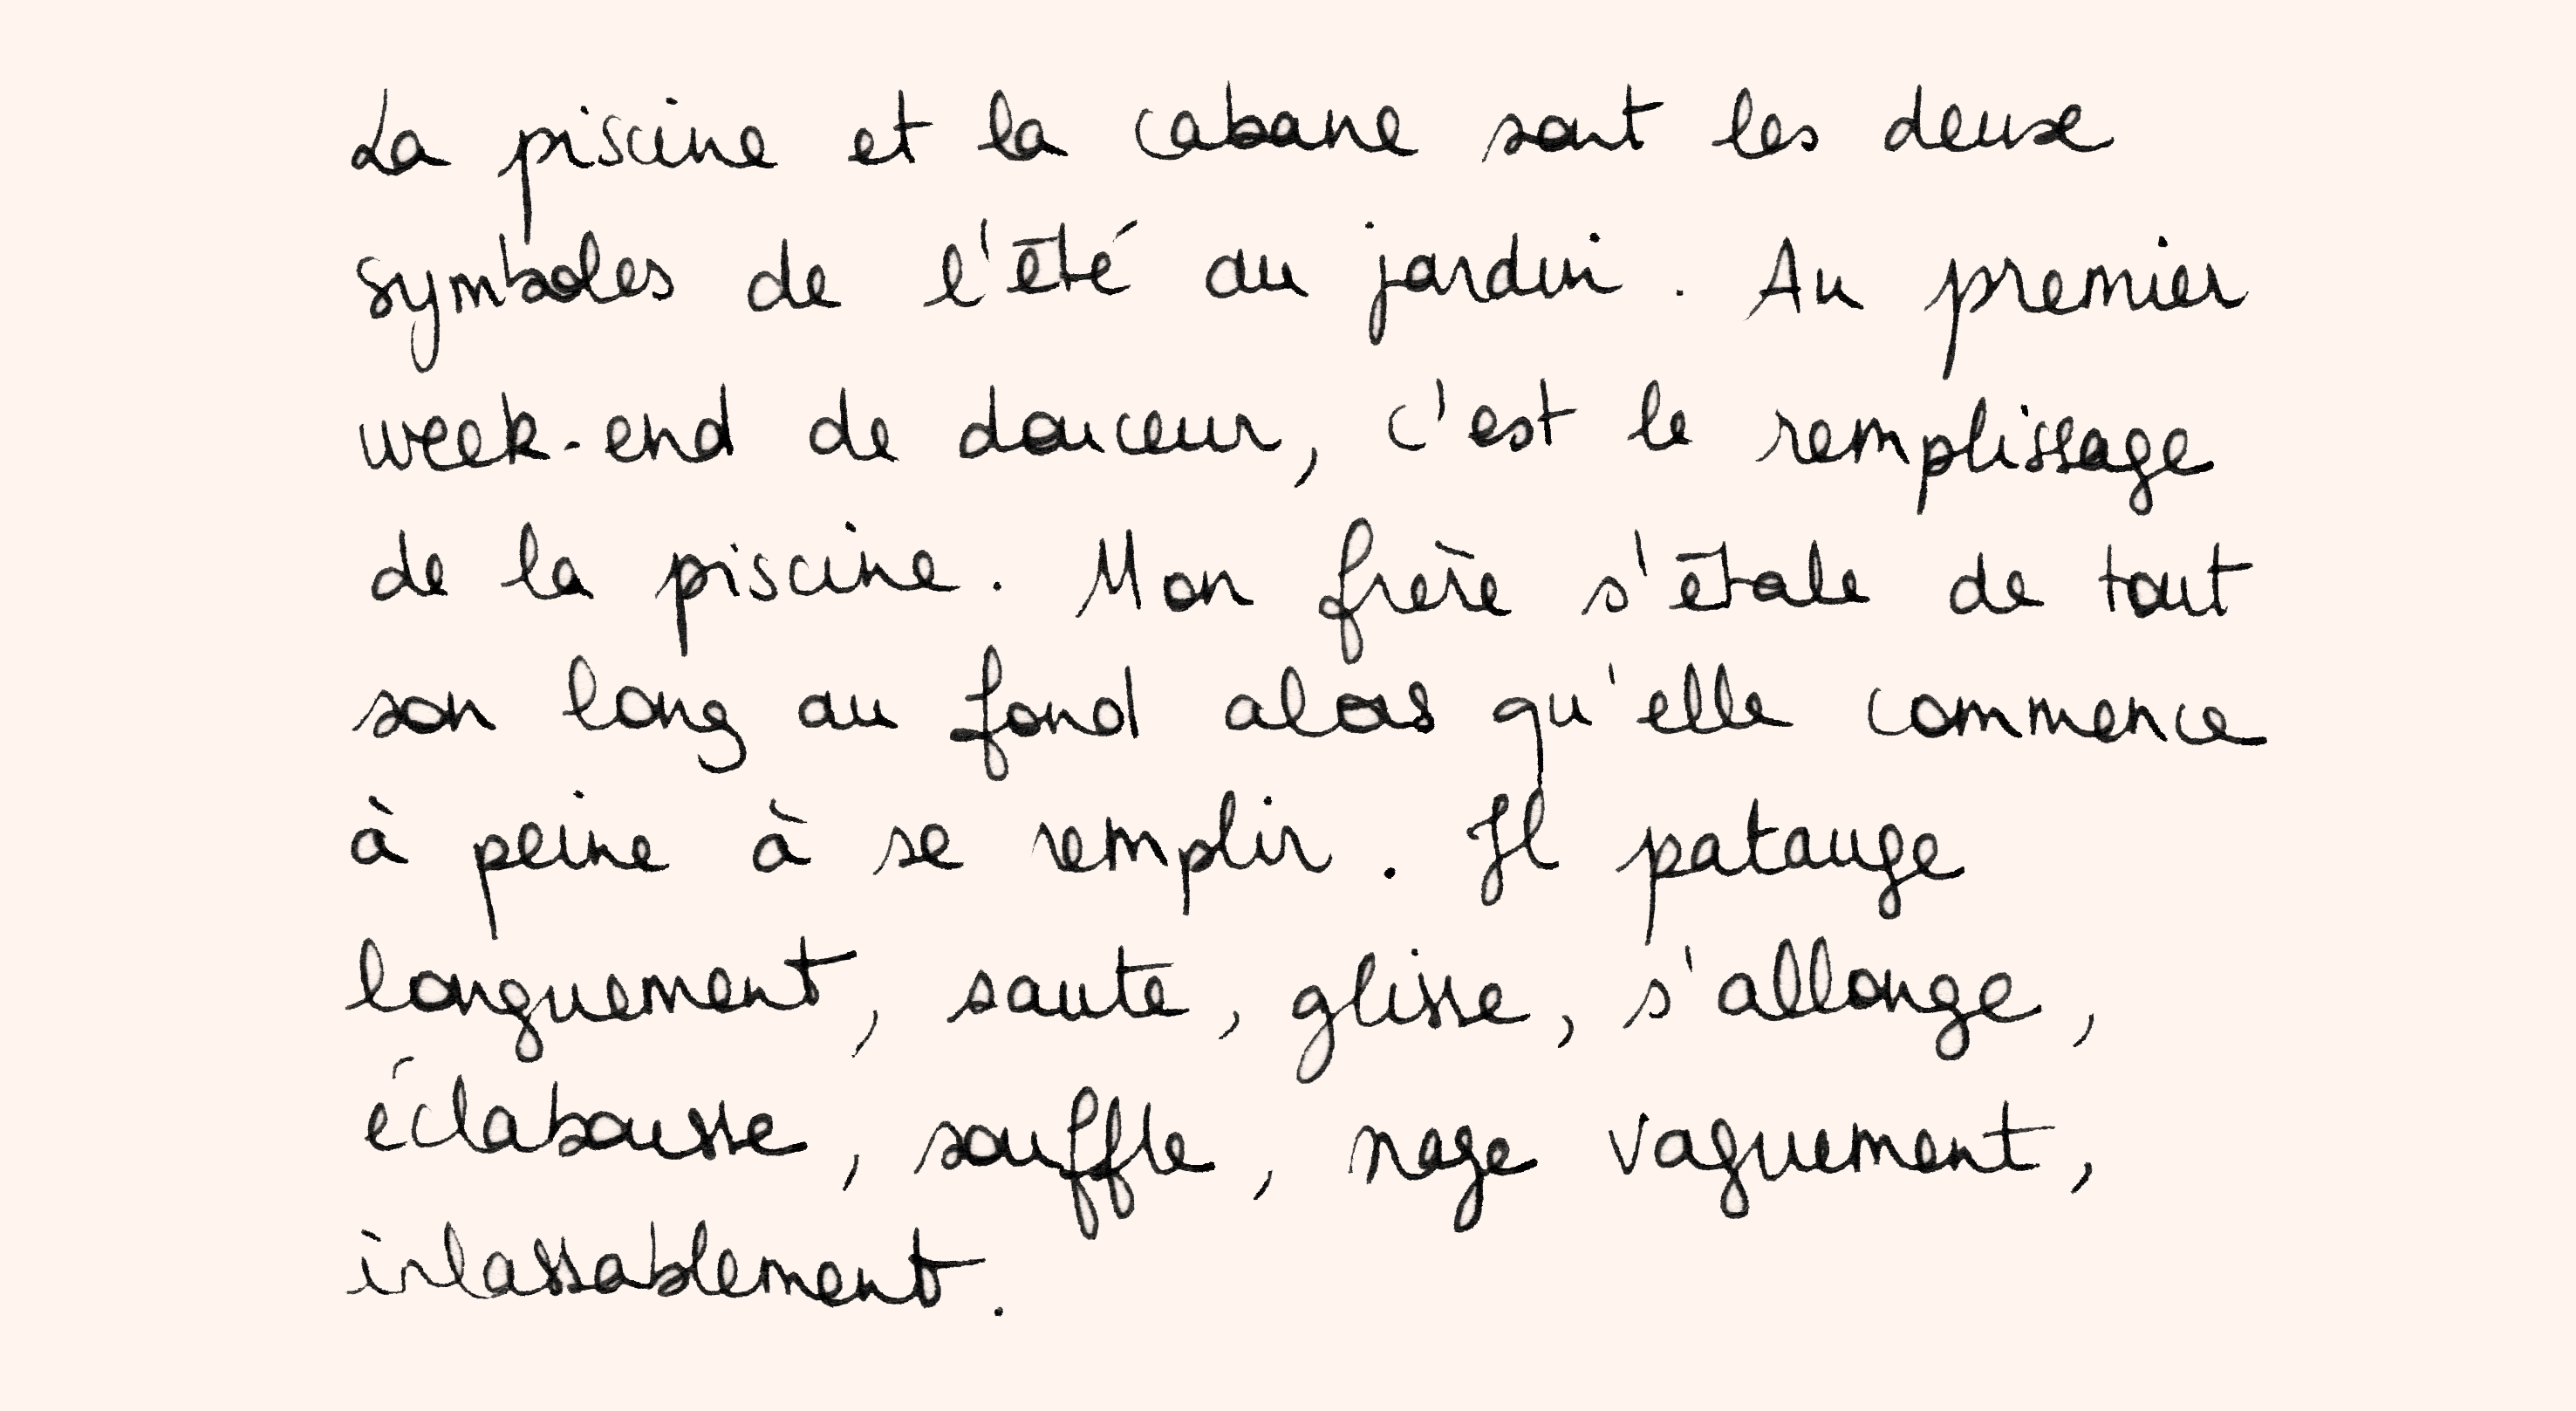 La piscine et la cabane sont les deux
symboles de l'été au jardin. Au premier
week-end de douceur, c'est le remplissage
de la piscine. Mon frère s'étale de tout
son long au fond alors qu'elle commence
à peine à se remplir. Il patauge
longuement, saute, glisse, s'allonge,
éclabousse, souffle, nage vaguement,
inlassablement.